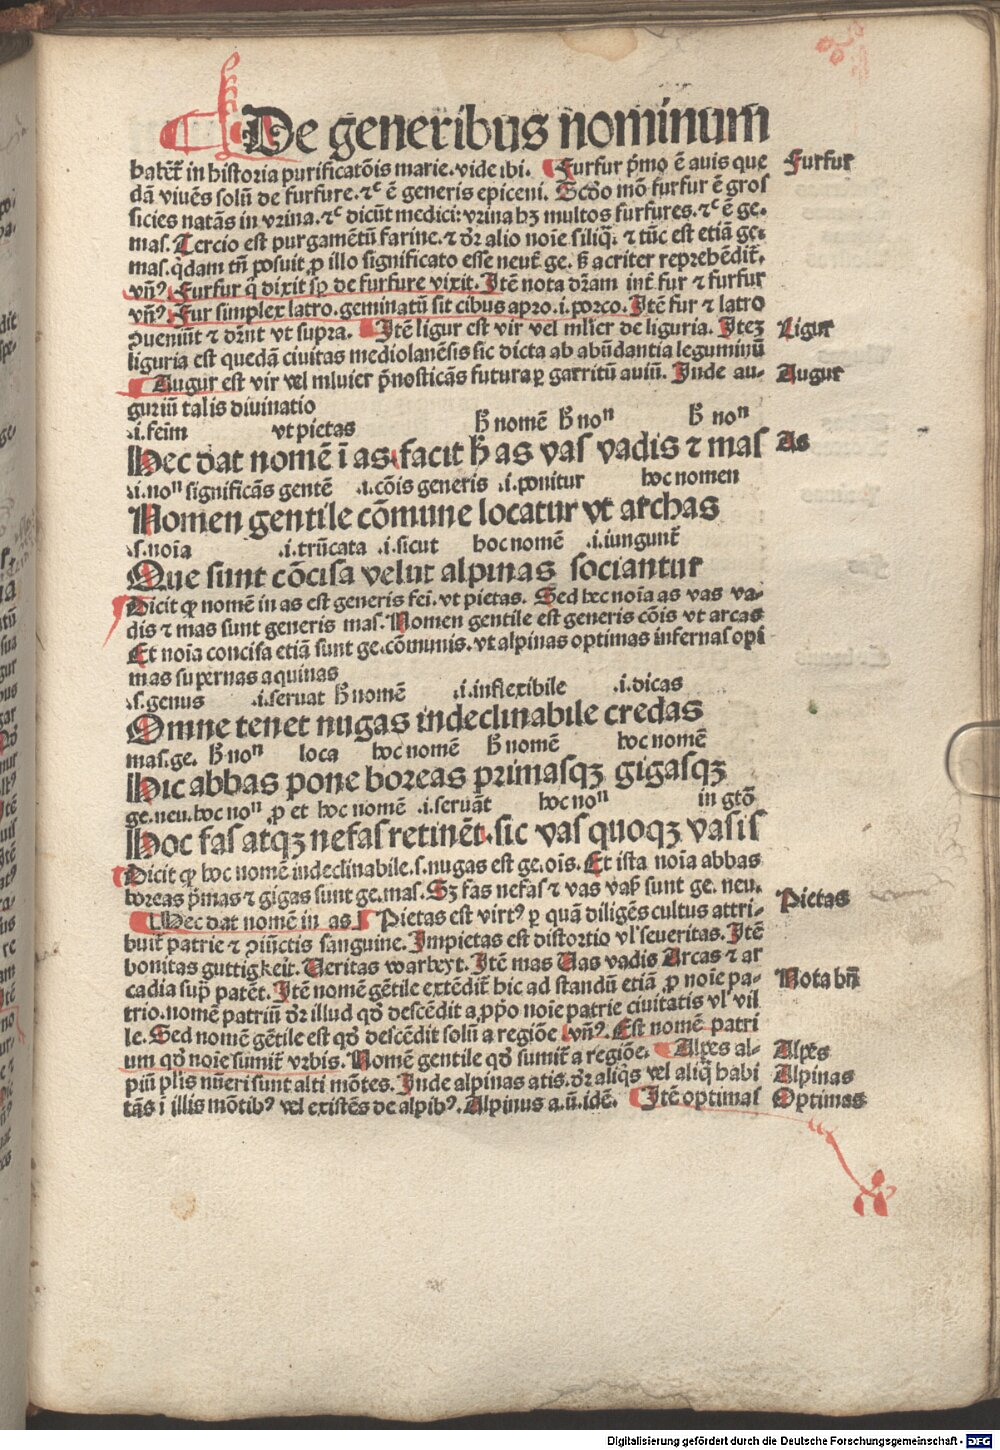 De generibus nominum
habet᷑ in historia purificatōis marie. vide ibi. Furfur p̄mo ē auis que
Furfur
dā viuēs solū de furfure. ⁊ᶜ ē generis epiceni. Scďo mō furfur ē gros
sicies natās in vrina. ⁊ᶜ dicūt medici: vrina hꝫ multos furfures. ⁊ᶜ ē ge.
mas. Tercio est purgamētū farine. ⁊ dr̄ alio noīe siliq̄. ⁊ tūc est etiā ge.
mas. q̄dam tn̄ posuit ꝓ illo significato esse neut᷑ ge. ß acriter reprehēdit᷑.
vn̄ꝰ. Furfur q̄ dixit sꝑ de furfure vixit. Itē nota dr̄am int᷑ fur ⁊ furfur
vn̄ꝰ. Fur simplex latro. geminatū sit cibus apro .i. porco. Itē fur ⁊ latro
ꝯueniūt ⁊ dr̄nt vt supra. Itē ligur est vir vel mlier de liguria. Itez
Ligur
liguria est quedā ciuitas mediolanēsis sic dicta ab abūdantia leguminū
Augur est vir vel mluier p̄nosticās futura ꝑ garritū auiū. Inde au-
Augur
guriū talis diuinatio
.i. feim̄ vt pietas h̄ nomē h̄ noⁿ h̄ noⁿ
Hec dat nomē ī as facit h̄ as vas vadis ⁊ mas
As
.i. noⁿ significās gentē .i. cōis generis .i. ponitur hoc nomen
Nomen gentile cōmune locatur vt archas
.s. noīa .i. trūcata .i. sicut hoc nomē .i. iungunt᷑
Que sunt cōcisa velut alpinas sociantur
Dicit ꝙ nomē in as est generis fei. vt pietas. Sed hec noīa as vas va-
dis ⁊ mas sunt generis mas. Nomen gentile est generis cōis vt arcas
Et noīa concisa etiā sunt ge. cōmunis. vt alpinas optimas infernas opi
mas supernas aquinas
.s. genus .i. seruat h̄ nomē .i. inflexibile .i. dicas
Omne tenet nugas indeclinabile credas
mas. ge. h̄ noⁿ loca hoc nomē h̄ nomē hoc nomē
Hic abbas pone boreas primasqꝫ gigasqꝫ
ge. neu. hoc noⁿ ꝓ et hoc nomē .i. seruāt hoc noⁿ in gtō
Hoc fas atqꝫ nefas retinēt. sic vas quoqꝫ vasis
Dicit ꝙ hoc nomē indeclinabile .s. nugas est ge. oīs. Et ista noīa abbas
boreas p̄mas ⁊ gigas sunt ge. mas. Sꝫ fas nefas ⁊ vas vaß sunt ge. neu.
Hec dat nomē in as Pietas est virtꝰ ꝑ quā diligēs cultus attri-
Pietas
buit᷑ patrie ⁊ ꝯiūctis sanguine. Impietas est distortio vl̓ seueritas. Itē
bonitas guttigkeit. Veritas warheyt. Itē mas Vas vadis Arcas ⁊ ar
cadia sup̄ patēt. Itē nomē gētile extēdit᷑ hic ad standū etiā ꝓ noīe pa-
Nota bn̄
trio. nomē patriū dr̄ illud qď descēdit a ꝓp̄o noīe patrie ciuitatis vl̓ vil
le. Sed nomē gētile est qď descēdit solū a regiōe vn̄ꝰ. Est nomē patri
um qď noīe sumit᷑ vrbis. Nomē gentile qď sumit᷑ a regiōe. Alpes al-
Alpes
piū plīs nūeri sunt alti mōtes. Inde alpinas atis. dr̄ aliq̄s vel aliq̄ habi
Alpinas
tās ī illis mōtibꝰ vel existēs de alpibꝰ. Alpinus a. ū. idē. Itē optimas
Optimas
Digitalisierung gefördert durch die Deutsche Forschungsgemeinschaft - DFG